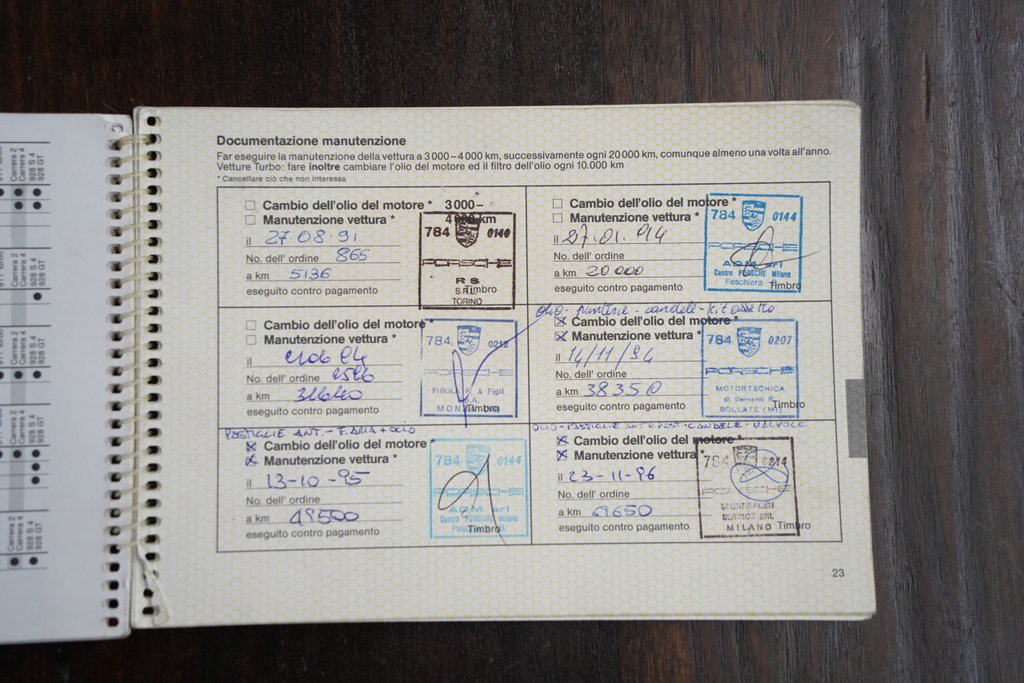 Documentazione manutenzione
Far eseguire la manutenzione della vettura a 3 000 – 4 000 km, successivamente ogni 20 000 km, comunque almeno una volta all'anno.
Vetture Turbo: fare inoltre cambiare l'olio del motore ed il filtro dell'olio ogni 10.000 km
* Cancellare ciò che non interessa
Cambio dell'olio del motore * 3 000 –
Manutenzione vettura * 4 000 km
il 27 08 91
No. dell' ordine 865
a km 5136
eseguito contro pagamento
784 0140
PORSCHE
R S
S.R.L.
TORINO
Timbro
Cambio dell'olio del motore *
Manutenzione vettura *
il 27.01.94
No. dell' ordine
a km 20 000
eseguito contro pagamento
784 0144
PORSCHE
ADM srl
Centro PORSCHE Milano
Peschiera
Timbro
Cambio dell'olio del motore *
Manutenzione vettura *
il
No. dell' ordine
a km
eseguito contro pagamento
784 0212
PORSCHE
& Figli
Timbro
olio - - candele - kit assetto
Cambio dell'olio del motore *
Manutenzione vettura *
il 14/11/94
No. dell' ordine
a km 38350
eseguito contro pagamento
784 0207
PORSCHE
MOTORTECNICA
di Bernardi R.
BOLLATE (MI)
Timbro
PASTIGLIE ANT. - F. ARIA + OLIO
Cambio dell'olio del motore *
Manutenzione vettura *
il 13-10-95
No. dell' ordine
a km 49500
eseguito contro pagamento
784 0144
PORSCHE
ADM srl
Centro PORSCHE Milano
Timbro
OLIO - PASTIGLIE ANT e POST - CANDELE - VALVOLE
Cambio dell'olio del motore *
Manutenzione vettura *
il 23-11-96
No. dell' ordine
a km 61650
eseguito contro pagamento
784 0214
PORSCHE
SPORTWAGEN
SERVICE SRL
MILANO
Timbro
23
Carrera 2
Carrera 4
928 S 4
928 GT
Carrera 2
Carrera 4
928 S 4
928 GT
Carrera 2
Carrera 4
928 S 4
928 GT
Carrera 2
Carrera 4
928 S 4
928 GT
Carrera 2
Carrera 4
928 S 4
928 GT